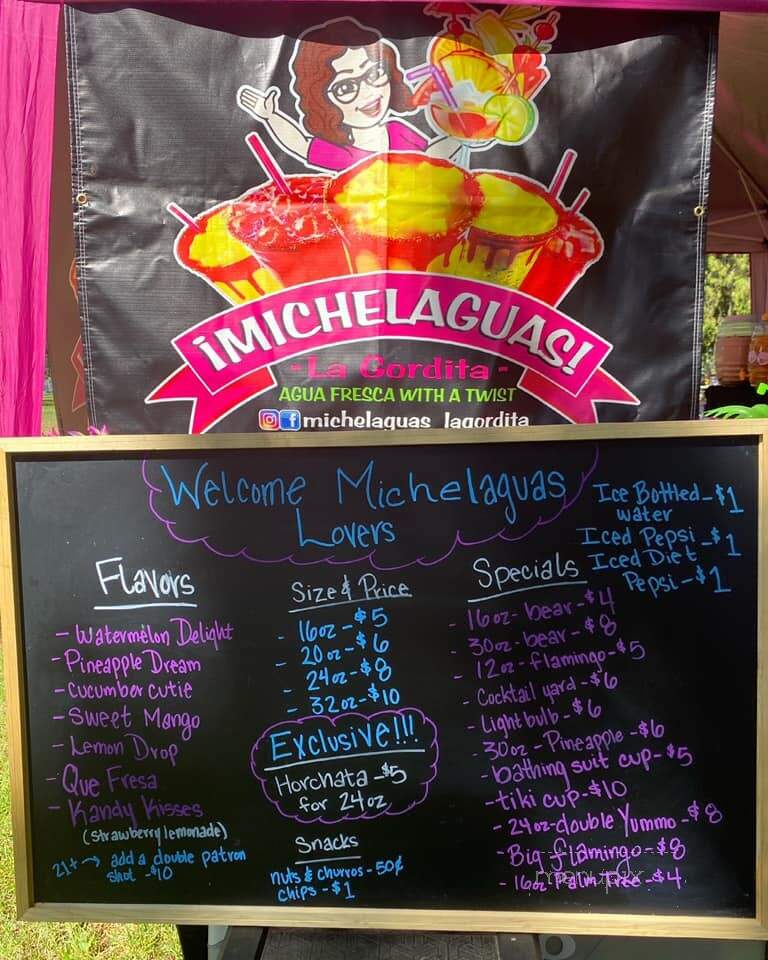 ¡MICHELAGUAS!
- La Gordita -
AGUA FRESCA WITH A TWIST
michelaguas_lagordita
Welcome Michelaguas
Lovers
Ice Bottled - $1
water
Iced Pepsi - $1
Iced Diet
Pepsi - $1
Flavors
- Watermelon Delight
- Pineapple Dream
- cucumber cutie
- Sweet Mango
- Lemon Drop
- Que Fresa
- Kandy Kisses
(strawberry lemonade)
21+ → add a double patron
shot - $10
Size & Price
- 16oz - $5
- 20oz - $6
- 24oz - $8
- 32oz - $10
Exclusive!!!
Horchata - $5
for 24oz
Snacks
nuts & churros - 50¢
chips - $1
Specials
- 16oz - bear - $4
- 30oz - bear - $8
- 12oz - flamingo - $5
- Cocktail yard - $6
- Light bulb - $6
- 30oz - Pineapple - $6
- bathing suit cup - $5
- tiki cup - $10
- 24oz - double Yummo - $8
- Big flamingo - $8
- 16oz Palm Tree - $4
menupix